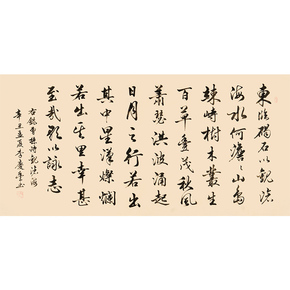 東臨碣石以觀滄
海水何澹〻山島
竦峙樹木叢生
百草豐茂秋風
蕭瑟洪波涌起
日月之行若出
其中星漢燦爛
若出其里幸甚
至哉歌以詠志
右錄曹操詩觀滄海
辛丑夏李慶書